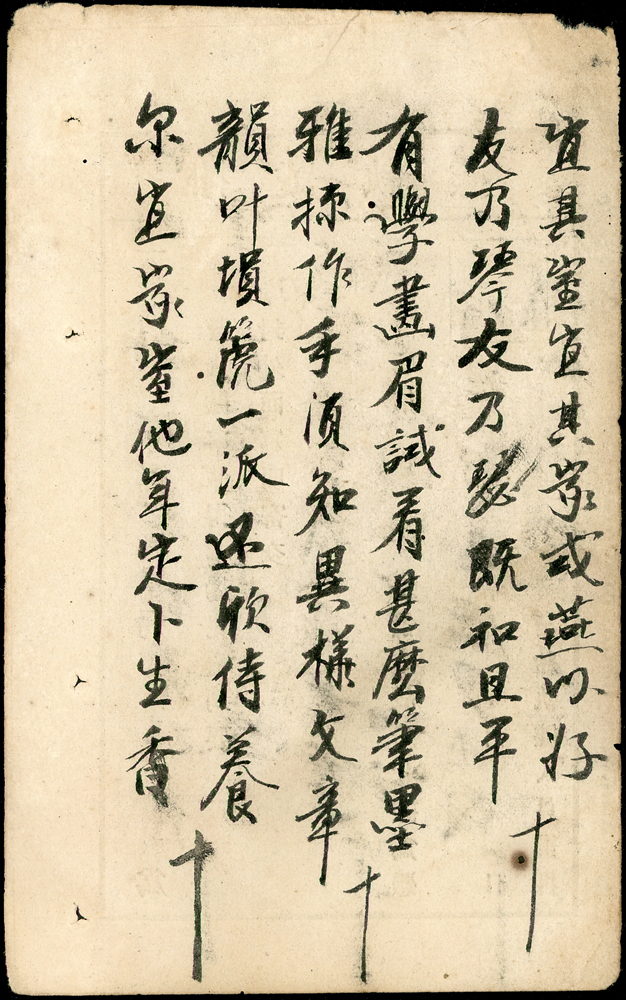 宜其室宜其家式燕以好
友乃琴友乃瑟既和且平
有學畫眉試看甚麽筆墨
雅操作手須知異樣文章
韻叶塤篪一派還欣侍養
尔宜家室他年定卜生香